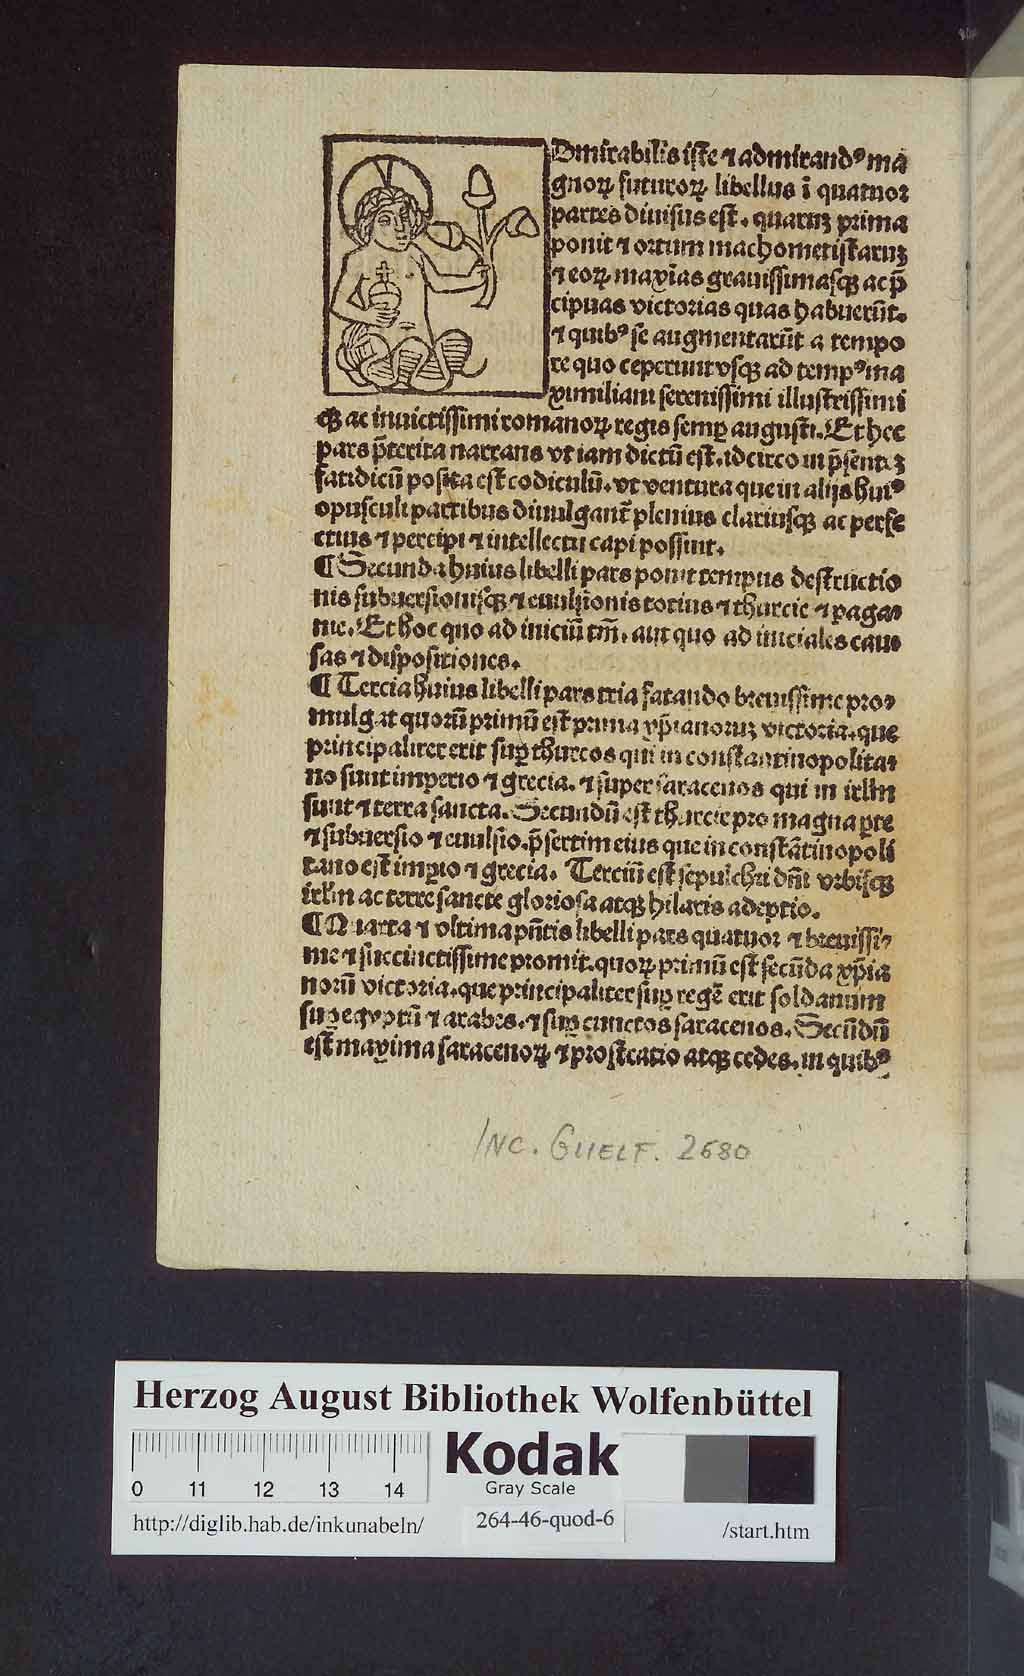 Dmirabilis iste ⁊ admirandꝰ ma
gnoꝝ futuroꝝ libellus ī quatuor
partes diuisus est. quaruꝫ prima
ponit ⁊ ortum machometistaruꝫ
⁊ eoꝝ maxīas grauissimasqꝫ ac p̄
cipuas victorias quas habuerūt.
⁊ quibꝰ se augmentarūt a tempo
re quo ceperunt vsqꝫ ad tempꝰ ma
ximiliani serenissimi illustrissimi
qꝫ ac inuictissimi romanoꝝ regis semꝑ augusti. Et hec
pars p̄terita narrans vt iam dictū est. idcirco in p̄senteꝫ
fatidicū posita est codiculū. vt ventura que in alijs huiꝰ
opusculi partibus diuulganť plenius clariusqꝫ ac perfe
ctius ⁊ percipi ⁊ intellectu capi possint.
¶ Secunda huius libelli pars ponit tempus destructio
nis subuersionisqꝫ ⁊ euulsionis totius ⁊ thurcie ⁊ paga-
nie. Et hoc quo ad iniciū tm̄. aut quo ad iniciales cau
sas ⁊ dispositiones.
¶ Tercia huius libelli pars tria fatando breuissime pro-
mulgat quorū primū est prima xp̄ianoruꝫ victoria. que
principaliter erit suꝑ thurcos qui in constantinopolita-
no sunt imperio ⁊ grecia. ⁊ super saracenos qui in irlm̄
sunt ⁊ terra sancta. Secundū est thurcie pro magna ꝑte
⁊ subuersio ⁊ euulsio. p̄sertim eius que in constātinopoli
tano est imꝑio ⁊ grecia. Terciū est sepulchri dn̄i vrbisqꝫ
irlm̄ ac terre sancte gloriosa atqꝫ hilaris adeptio.
¶ Quarta ⁊ vltima pn̄tis libelli pars quatuor ⁊ breuissi-
me ⁊ succinctissime promit. quoꝝ primū est secūda xp̄ia
norū victoria. que principaliter suꝑ regē erit soldanum
suꝑ egyptū ⁊ arabes. ⁊ suꝑ cunctos saracenos. Secūdū
est maxima saracenoꝝ ⁊ prostratio atqꝫ cedes. in quibꝰ
Inc. Guelf. 2680
Herzog August Bibliothek Wolfenbüttel
Kodak
Gray Scale
0 11 12 13 14
http://diglib.hab.de/inkunabeln/
264-46-quod-6
/start.htm